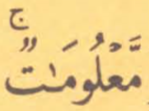 مَّعْلُومَـٰتٌ ۚ